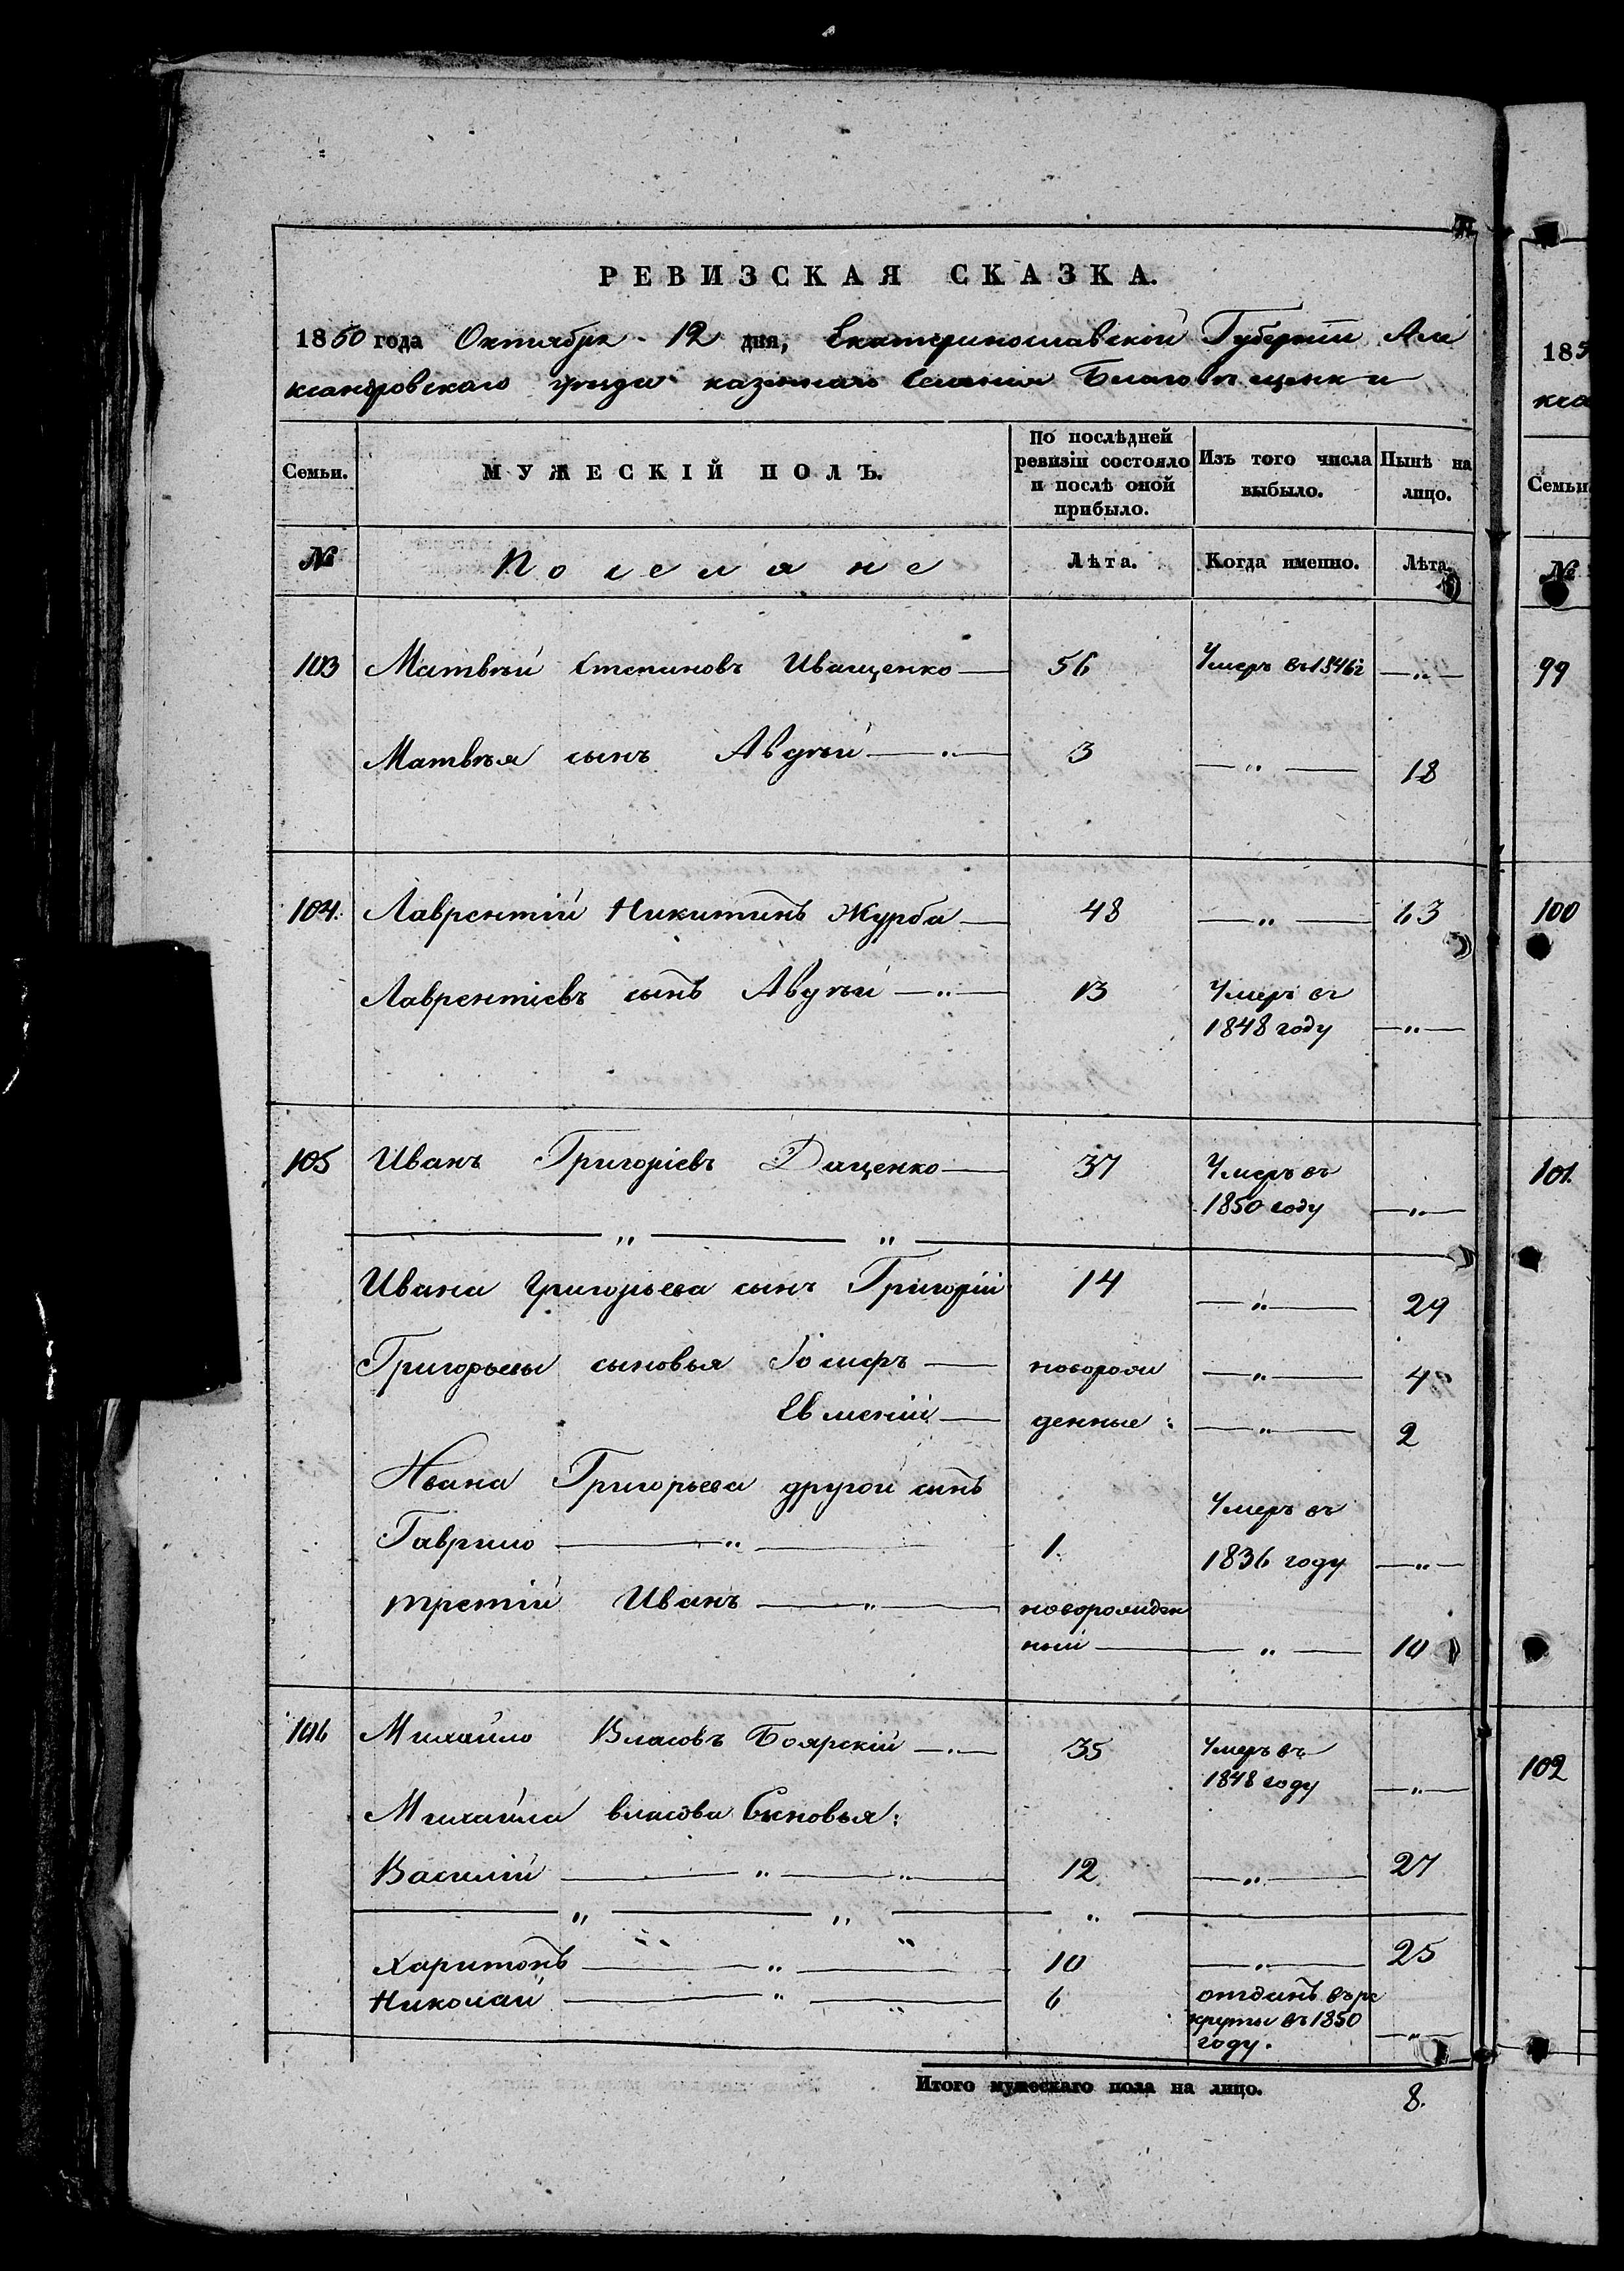 РЕВИЗСКАЯ СКАЗКА.
1850 года Октября 12 дня, Екатеринославской Губернiи Але
ксандровскаго уѣзда казеннаго Селенiя Благовѣщенки
Семьи. МУЖЕСКІЙ ПОЛЪ. По послѣдней ревизіи состояло и послѣ оной прибыло. Изъ того числа выбыло. Нынѣ на лицо.
№ Поселяне Лѣта. Когда именно. Лѣта.
103 Матвѣй Степановъ Иващенко — 56 Умеръ въ 1846 г —"—
Матвѣя сынъ Авдѣй —"— 3 —"— 18
104. Лаврентiй Никитинъ Журба — 48 —"— 63
Лаврентiевъ сынъ Авдѣй —"— 13 Умеръ въ
1848 году —"—
105 Иванъ Григорiевъ Даценко — 37 Умеръ въ
1850 году —"—
Ивана Григорьева сынъ Григорiй 14 —"— 29
Григорьевы сыновья Iосифъ — новорож —"— 4
Евменiй — денные: —"— 2
Ивана Григорьева другой сынъ Умеръ въ
Гаврило —"— 1. 1836 году —"—
третiй Иванъ —"— новорожден
ный —"— 10
106 Михайло Власовъ Боярскiй —"— 35 Умеръ въ
1848 году —"—
Михайла власова Сыновья:
Василiй —"— 12 —"— 27
Харитонъ —"— 10 —"— 25
Николай —"— 6 отданъ въ ре
круты въ 1850
году. —"—
Итого мужескаго пола на лицо. 8.
185
кса
Семьи
№
99
100
101.
102